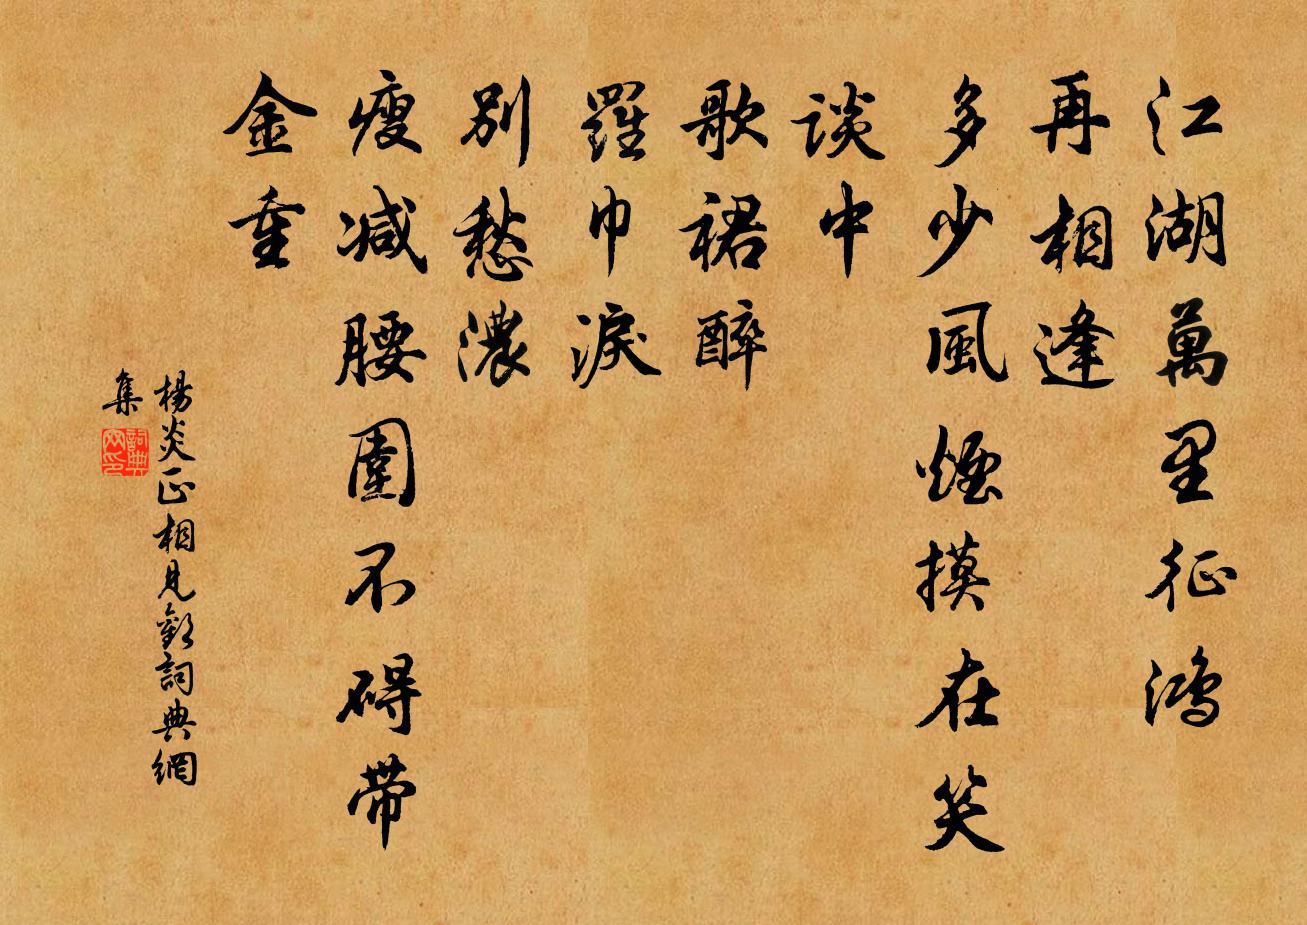 江湖萬里征鴻
再相逢
多少風煙摸在笑
談中
歌裙醉
羅巾淚
別愁濃
瘦减腰圍不碍带
金重
楊炎正相見歡詞典網
集
詞典網印